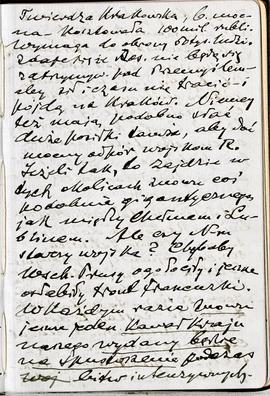 Twierdza Krakowska, b. moc-
na. Kosztowała 100 mil. rubli.
Wymaga do obrony 60 tys. ludzi,
zdaje się że Ros. nie będą się
zatrzymyw. pod Przemyślem,
aby c. czasu nie tracić i
pójdą na Kraków. Niemcy
też mają podobno słać
duże posiłki tamże, aby dać
mocny odpór wojskom R.
Jeżeli tak, to zajdzie w
tych okolicach znowu coś
podobnie gigantycznego,
jak między Chełmem i Lu-
blinem. Ale czy Niem.
starczy wojska? Chybaby
Wsch. Prusy ogołocili i
osłabili front francuski.
W każdym razie znowu
jeden kawał kraju
naszego wydany będzie
na spustoszenie podczas
bitw intenzywnych.